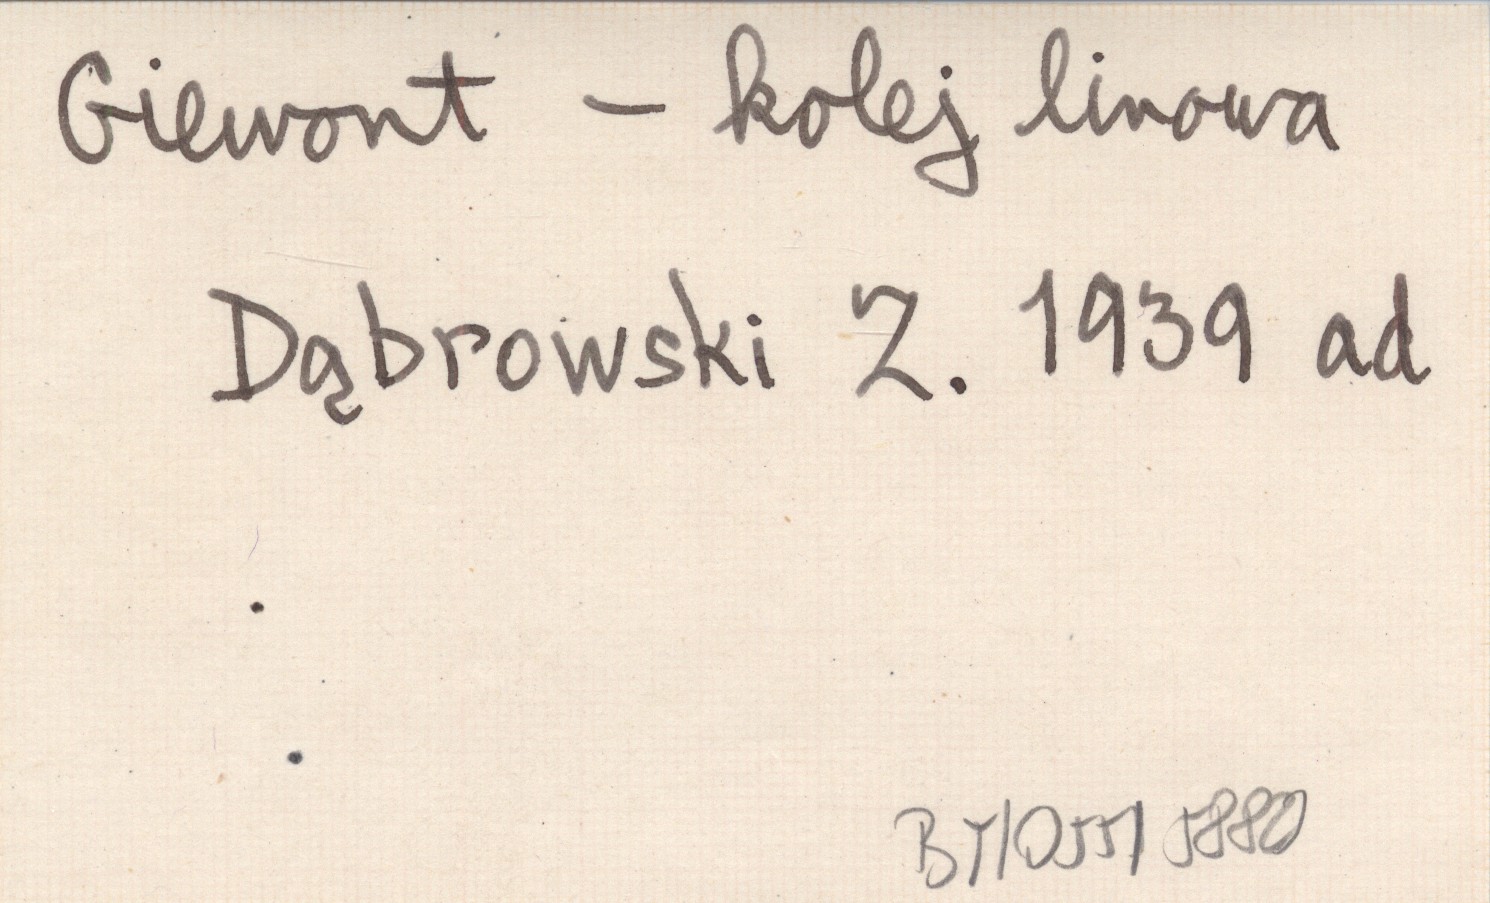 Giewont – kolej linowa
Dąbrowski Z. 1939 ad
BT/055/5880